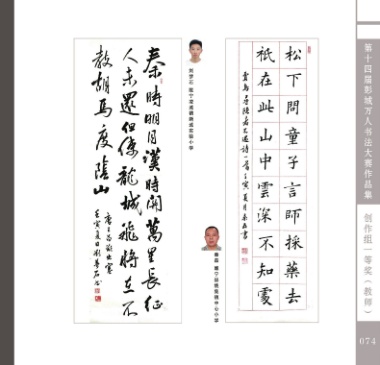 第十四届彭城万人书法大赛作品集
创作组一等奖（教师）
074
松下問童子言師採藥去
祇在此山中雲深不知處
賈島尋隱者不遇詩一首壬寅夏月
秦時明月漢時關萬里長征
人未還但使龍城飛將在不
教胡馬度陰山
唐王昌齡出塞
壬寅夏日劉夢石書